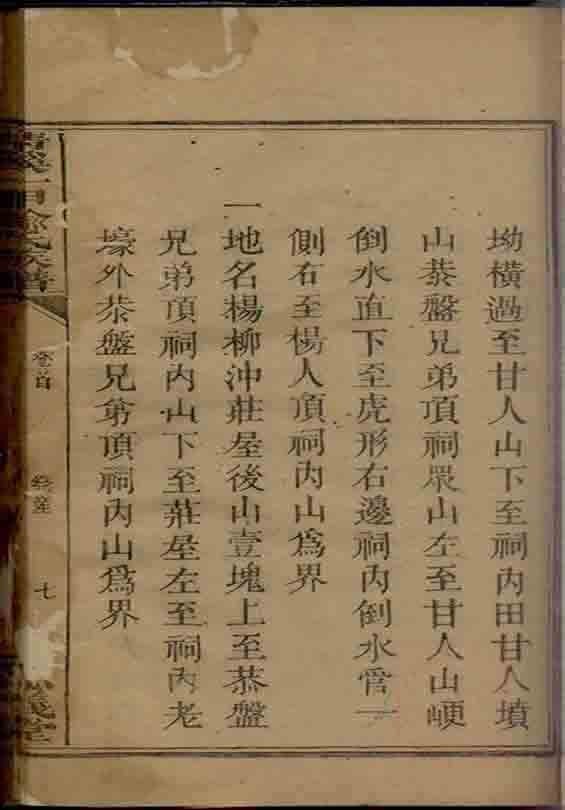 坳橫過至甘人山下至祠內田甘人墳
山恭盤兄弟頂祠眾山左至甘人山峺
倒水直下至虎形右邊祠內倒水管一
側右至楊人頂祠內山爲界
一地名楊柳沖莊屋後山壹塊上至恭盤
兄弟頂祠內山下至莊屋左至祠內老
壕外恭盤兄弟頂祠內山爲界
卷首
七